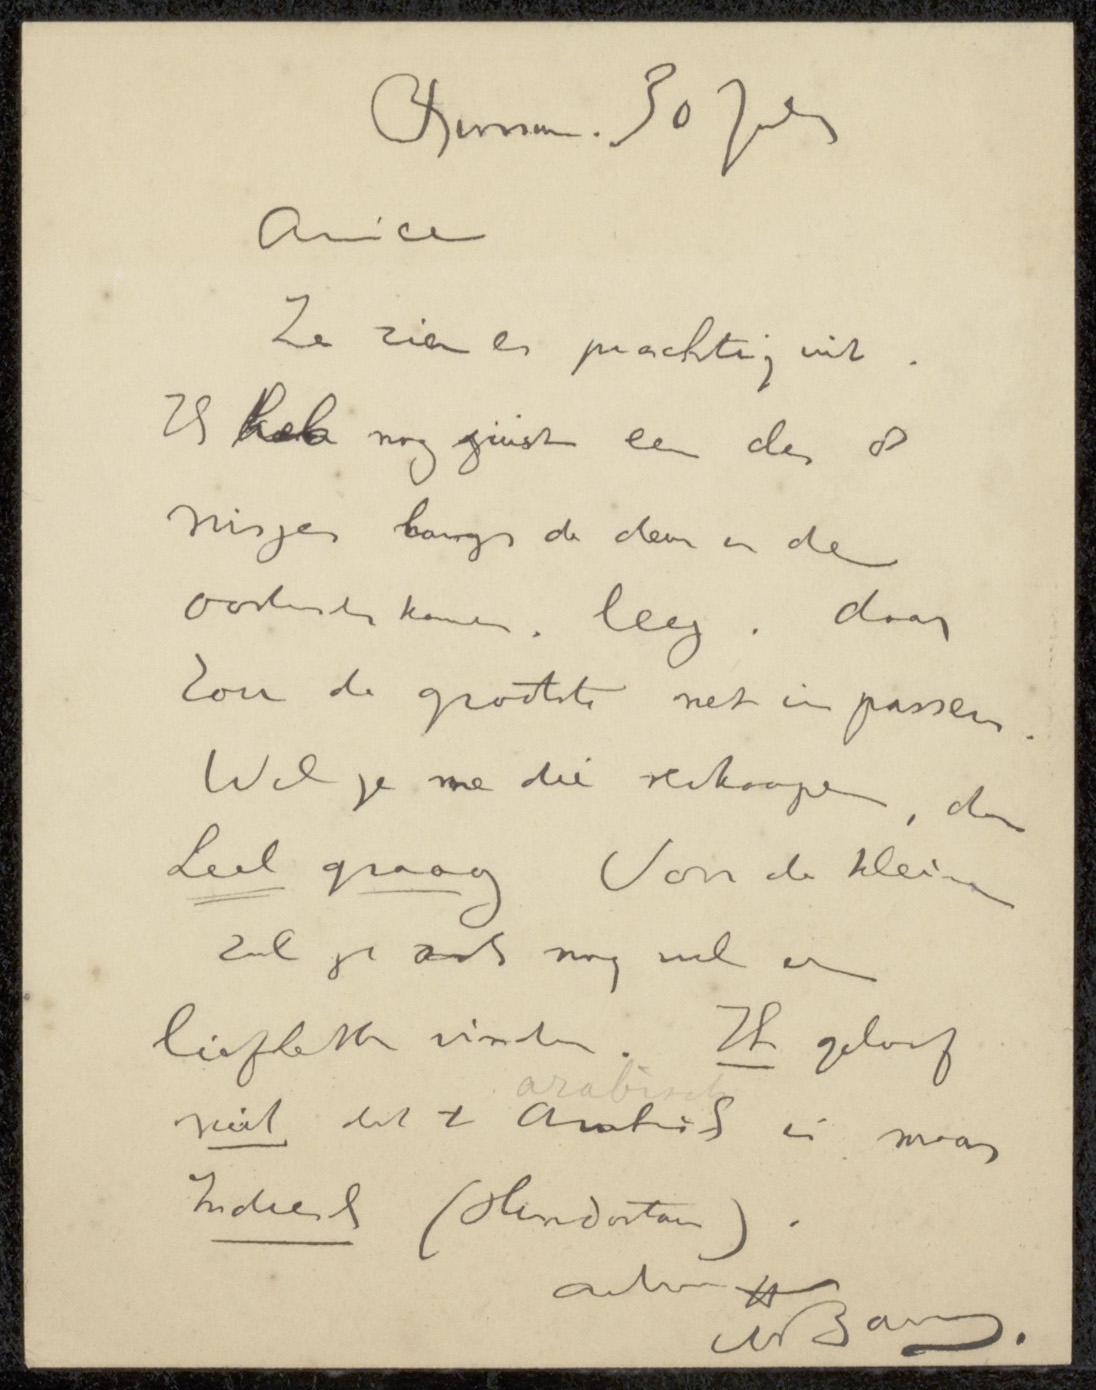 30 July
Amice
Ze zien er prachtig uit.
Ik heb nog juist een der 8
nisjes langs de deur in de
oostersche kamer. leeg. daar
zou de grootste net in passen.
Wil je me die verkoopen, dan
heel graag Voor de kleine
zal je ook nog wel een
liefhebber vinden. Ik geloof
arabisch
niet dat 't Arabisch is maar
Indisch (Hindostan).